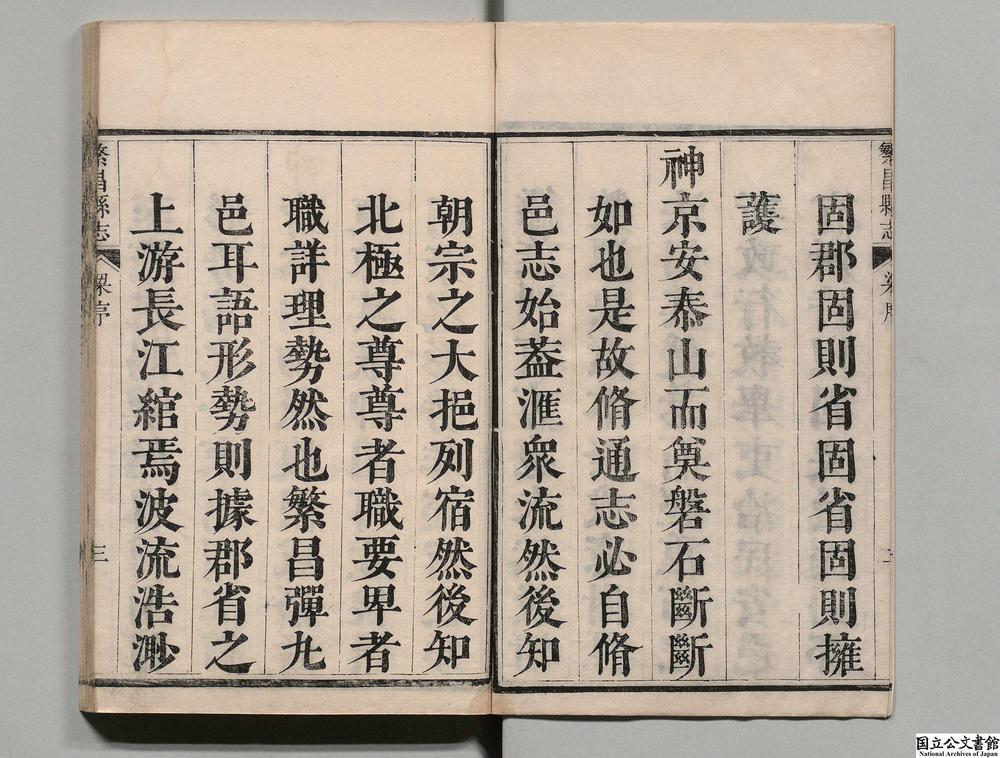 固郡固則省固省固則擁
護
神京安泰山而奠磐石斷斷
如也是故脩通志必自脩
邑志始葢滙衆流然後知
朝宗之大挹列宿然後知
北極之尊尊者職要卑者
職詳理勢然也繁昌彈丸
邑耳語形勢則據郡省之
上游長江綰焉波流浩渺
繁昌縣志
梁序
三
繁昌縣志
国立公文書館
National Archives of Japan